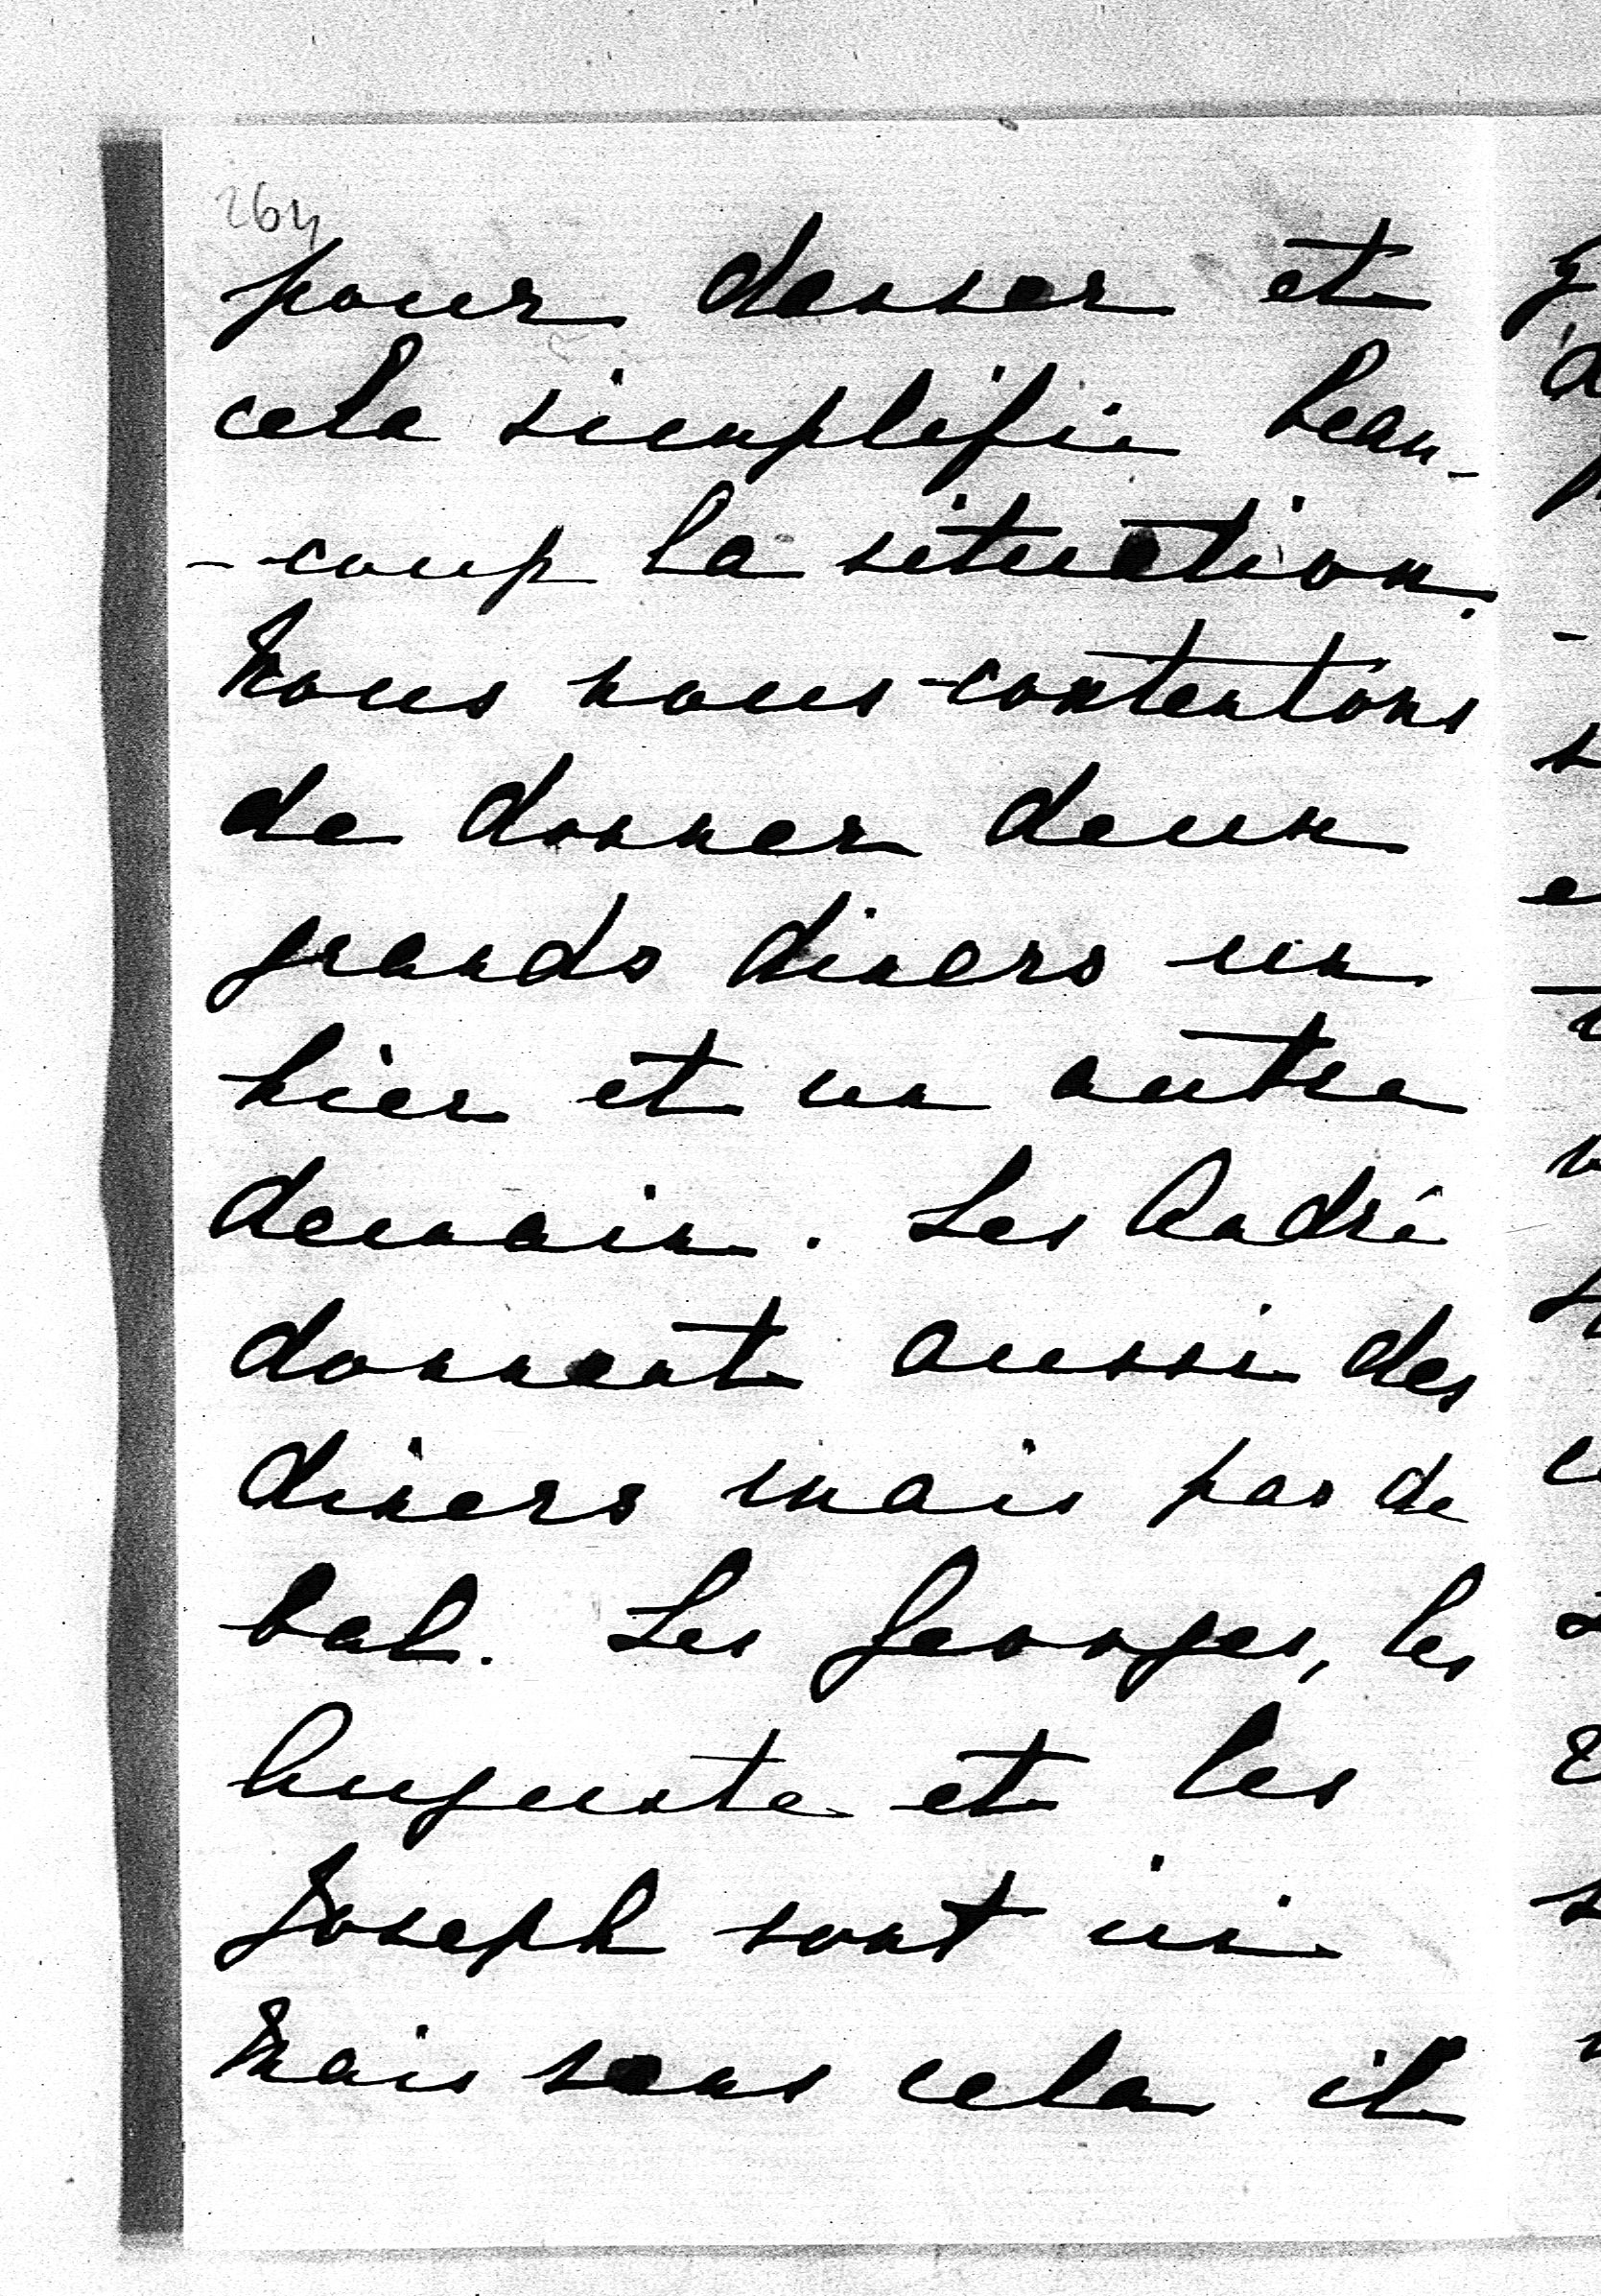 264
pour danser et
cela simplifie beau-
-coup la situation.
Nous nous contentons
de donner deux
grands diners un
hier et un autre
demain. Les André
donnent aussi des
diners mais pas de
bal. Les Georges, les
Auguste et les
Joseph sont ici
Mais sans cela il